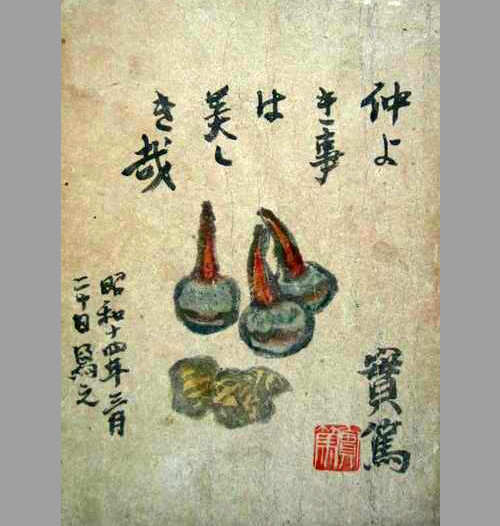 仲よ
き事
は
美し
き哉
實篤
昭和十四年三月
二十日寫之